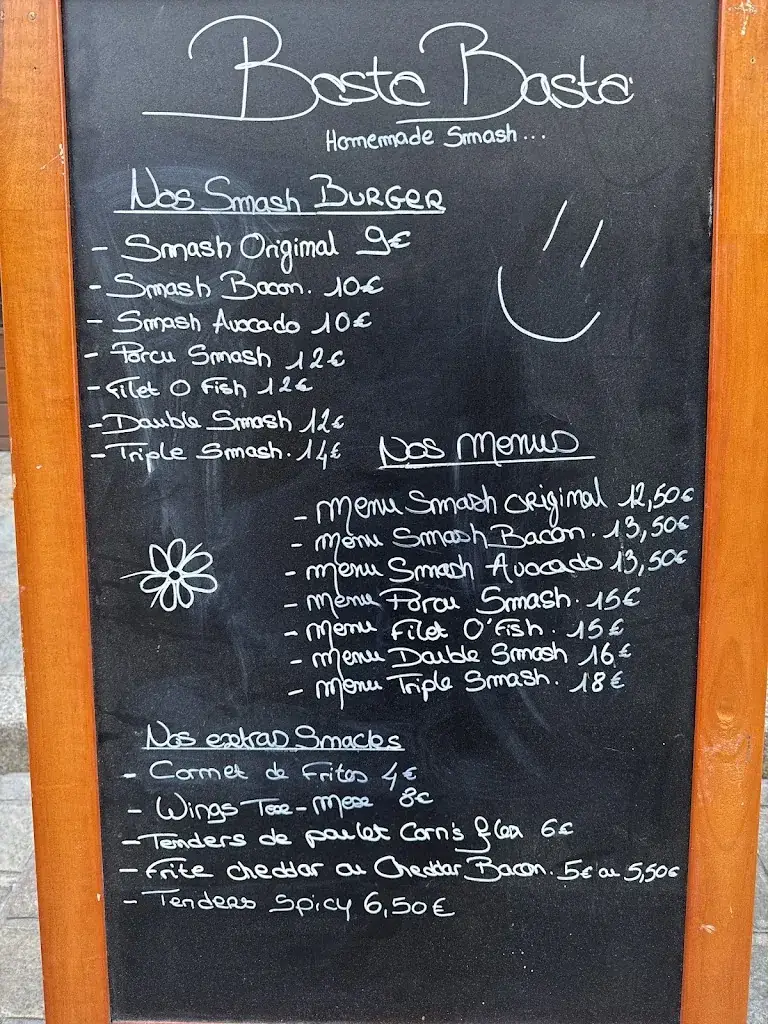 Basta Basta
Homemade Smash...
Nos Smash BURGER
- Smash Original 9€
- Smash Bacon. 10€
- Smash Avocado 10€
- Porcu Smash 12€
- Filet O Fish 12€
- Double Smash 12€
- Triple Smash. 14€
Nos Menus
- Menu Smash Original 12,50€
- Menu Smash Bacon. 13,50€
- Menu Smash Avocado 13,50€
- Menu Porcu Smash. 15€
- Menu Filet O'Fish. 15€
- Menu Double Smash 16€
- Menu Triple Smash. 18€
Nos extras Snacks
- Cornet de Frites 4€
- Wings Tex-Mex 8€
- Tenders de poulet Corn's flex 6€
- Frite cheddar ou Cheddar Bacon. 5€ ou 5,50€
- Tenders Spicy 6,50€